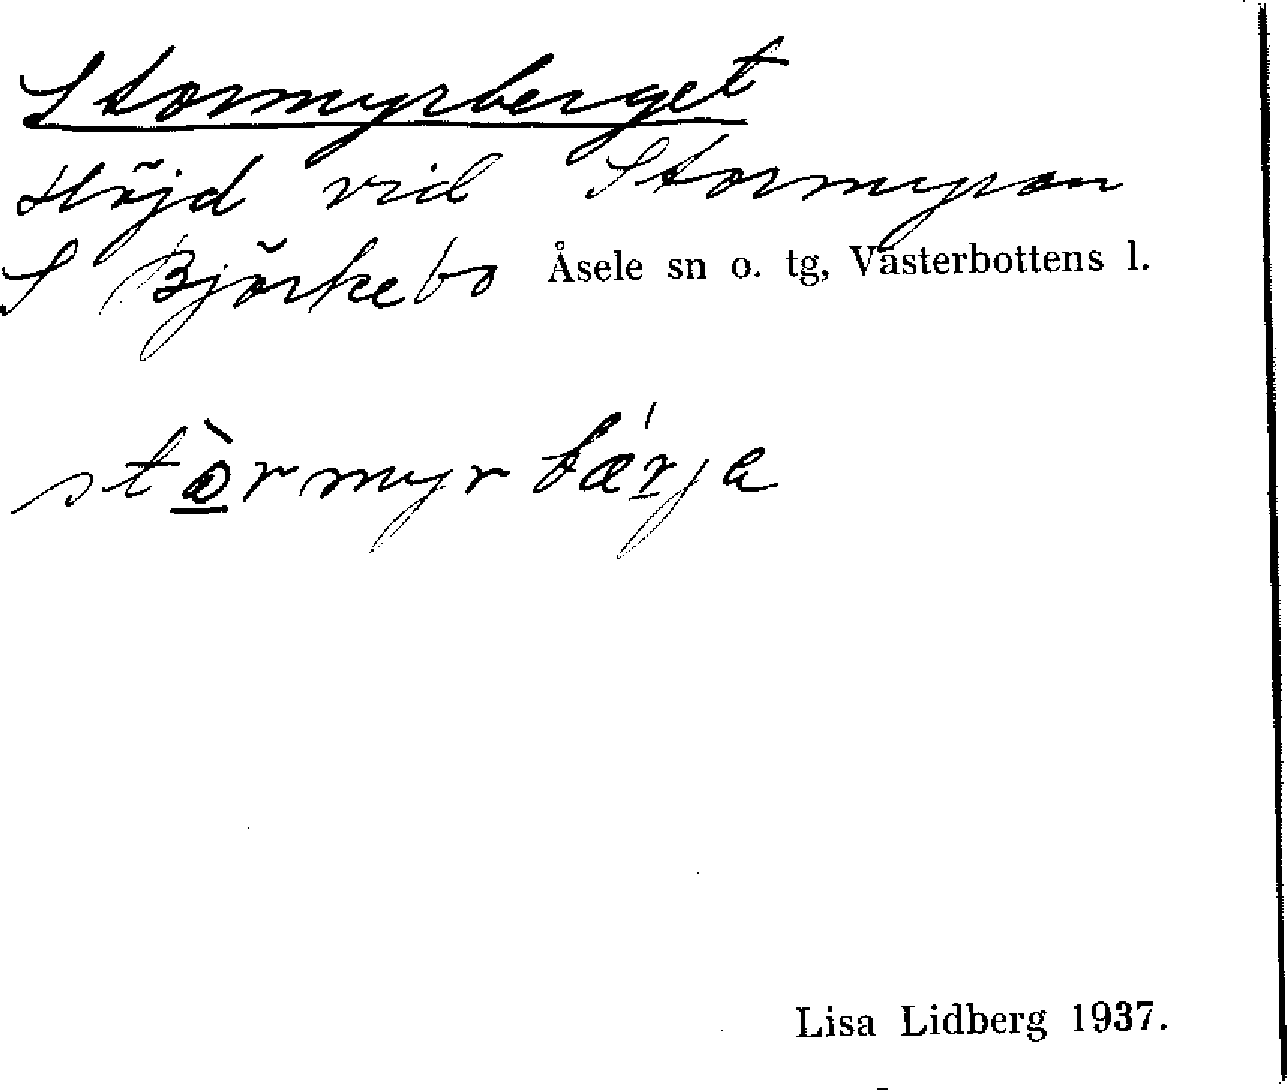 Stormyrberget
Höjd vid Stormyran
S Björkebo Åsele sn o. tg, Västerbottens l.
stò̲rmyrbæŕ̲ja
Lisa Lidberg 1937.